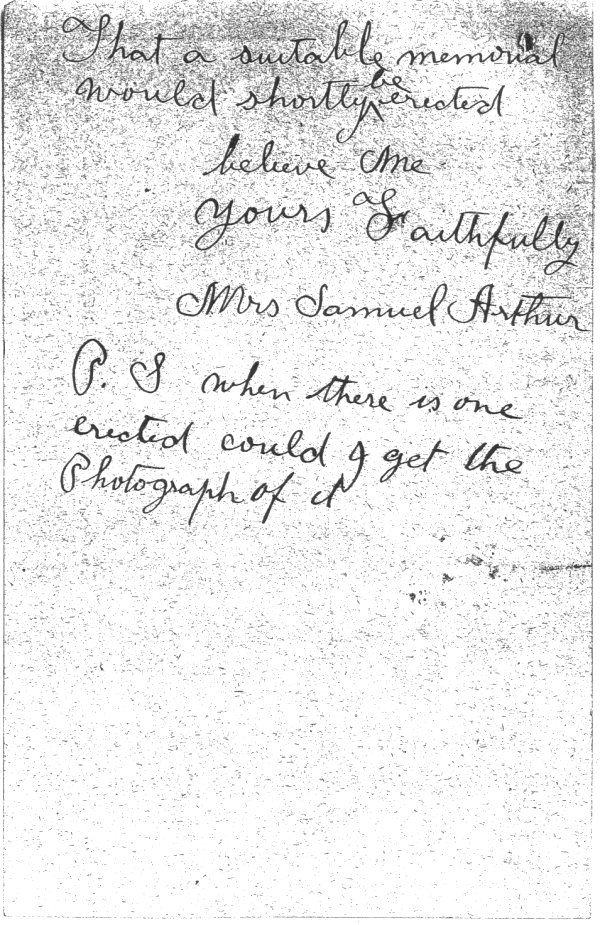 That a suitable memorial
would shortly be erected
believe Me
Yours Faithfully
Mrs Samuel Arthur
P. S when there is one
erected could I get the
Photograph of it